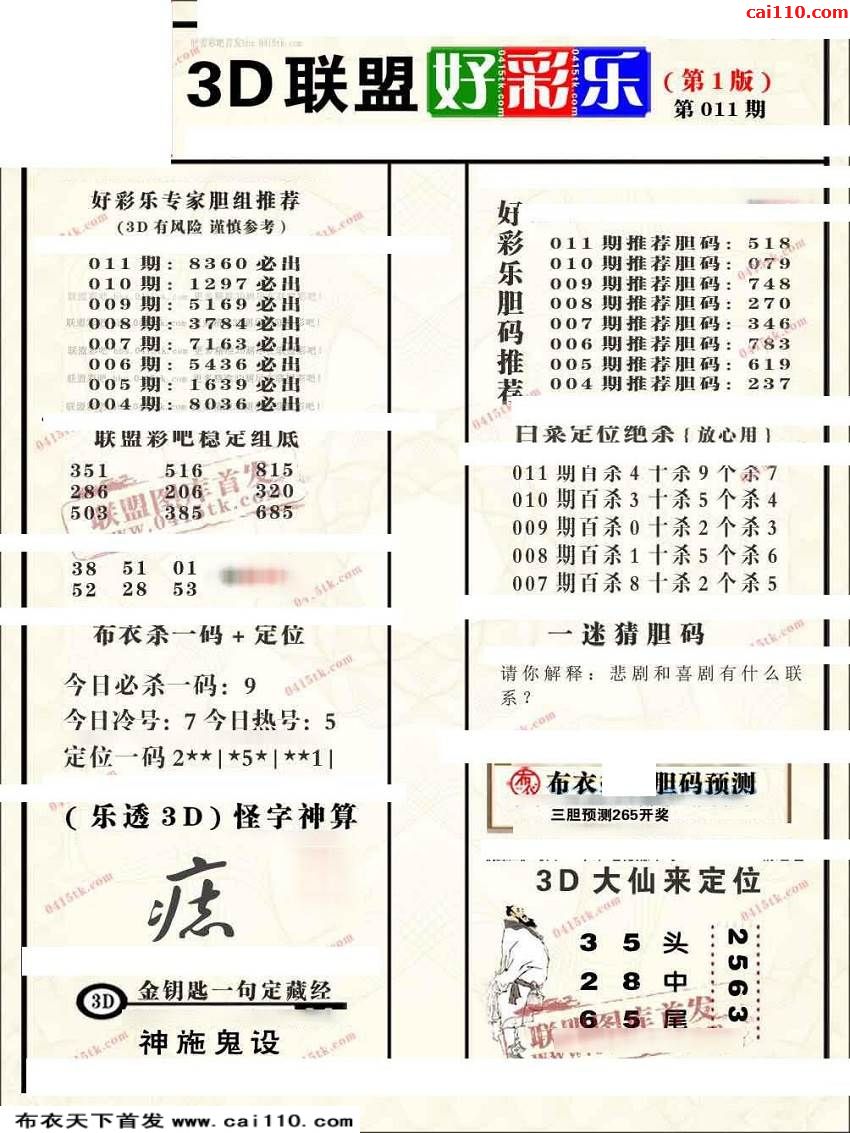 cai110.com
3D联盟好彩乐
(第1版)
第011期
好彩乐专家胆组推荐
(3D有风险 谨慎参考)
011期:8360必出
010期:1297必出
009期:5169必出
008期:3784必出
007期:7163必出
006期:5436必出
005期:1639必出
004期:8036必出
联盟彩吧稳定组底
351 516 815
286 206 320
503 385 685
联盟图库首发
www.0415tk.com
38 51 01
52 28 53
布衣杀一码+定位
今日必杀一码:9
今日冷号:7 今日热号:5
定位一码2**|*5*|**1|
(乐透3D)怪字神算
痣
3D 金钥匙一句定藏经
神施鬼设
好彩乐胆码推荐
011期推荐胆码:518
010期推荐胆码:079
009期推荐胆码:748
008期推荐胆码:270
007期推荐胆码:346
006期推荐胆码:783
005期推荐胆码:619
004期推荐胆码:237
白菜定位绝杀{放心用}
011期百杀4十杀9个杀7
010期百杀3十杀5个杀4
009期百杀0十杀2个杀3
008期百杀1十杀5个杀6
007期百杀8十杀2个杀5
一迷猜胆码
请你解释:悲剧和喜剧有什么联
系?
布衣 胆码预测
三胆预测265开奖
3D大仙来定位
3 5 头
2 8 中
6 5 尾
2563
联盟图库首发
布衣天下首发 www.cai110.com